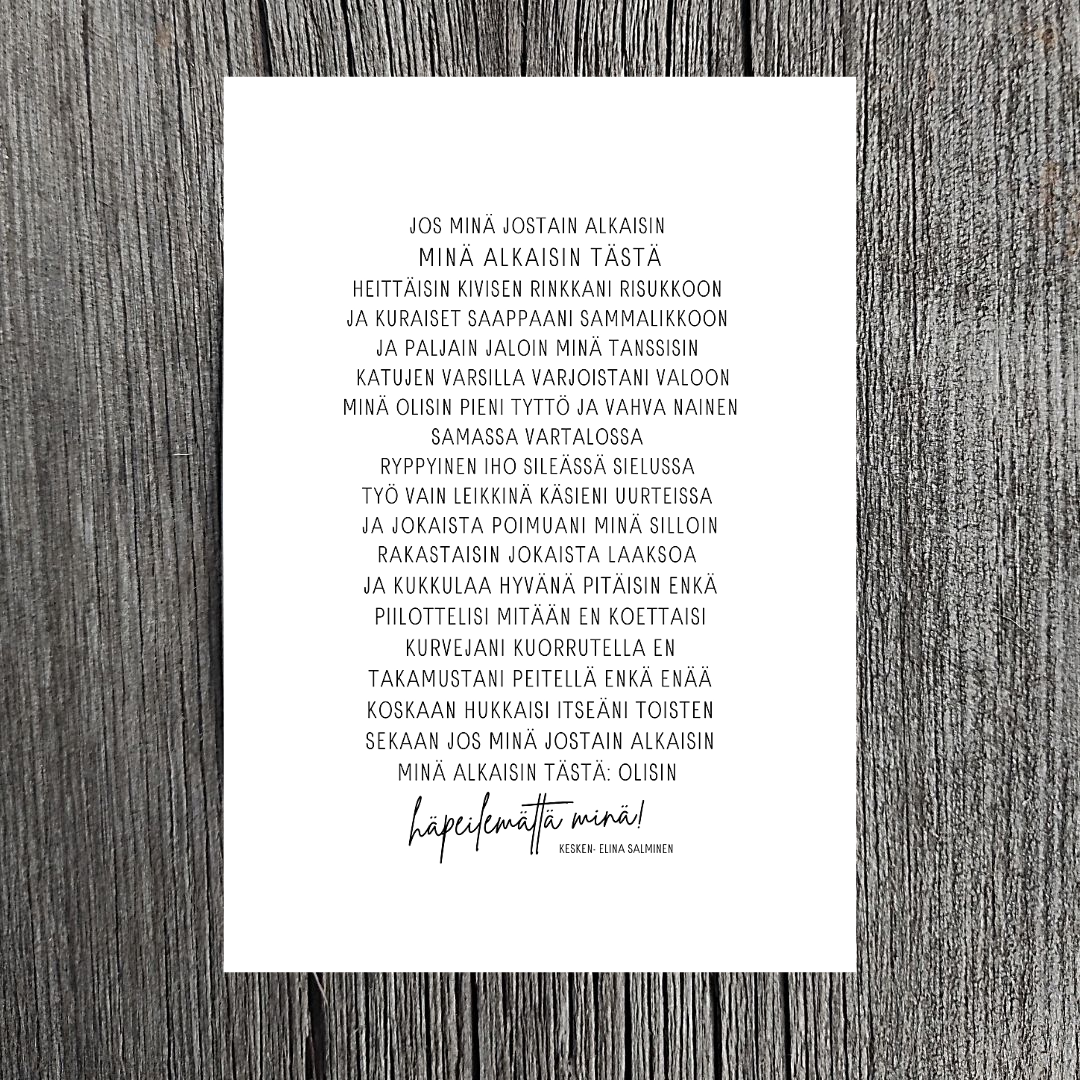 JOS MINÄ JOSTAIN ALKAISIN
MINÄ ALKAISIN TÄSTÄ
HEITTÄISIN KIVISEN RINKKANI RISUKKOON
JA KURAISET SAAPPAANI SAMMALIKKOON
JA PALJAIN JALOIN MINÄ TANSSISIN
KATUJEN VARSILLA VARJOISTANI VALOON
MINÄ OLISIN PIENI TYTTÖ JA VAHVA NAINEN
SAMASSA VARTALOSSA
RYPPYINEN IHO SILEÄSSÄ SIELUSSA
TYÖ VAIN LEIKKINÄ KÄSIENI UURTEISSA
JA JOKAISTA POIMUANI MINÄ SILLOIN
RAKASTAISIN JOKAISTA LAAKSOA
JA KUKKULAA HYVÄNÄ PITÄISIN ENKÄ
PIILOTTELISI MITÄÄN EN KOETTAISI
KURVEJANI KUORRUTELLA EN
TAKAMUSTANI PEITELLÄ ENKÄ ENÄÄ
KOSKAAN HUKKAISI ITSEÄNI TOISTEN
SEKAAN JOS MINÄ JOSTAIN ALKAISIN
MINÄ ALKAISIN TÄSTÄ: OLISIN
häpeilemättä minä!
KESKEN- ELINA SALMINEN